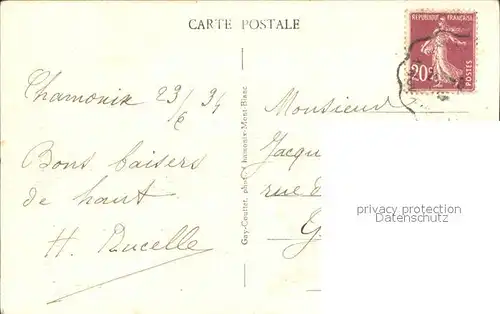 CARTE POSTALE
REPUBLIQUE FRANÇAISE
20c
POSTES
Chamonix 23/6 34
Bons baisers
de haut
H. Ducelle
Gay-Couttet, phot. Chamonix-Mont-Blanc
Monsieur
Jacqu
rue d
G.
privacy protection
Datenschutz